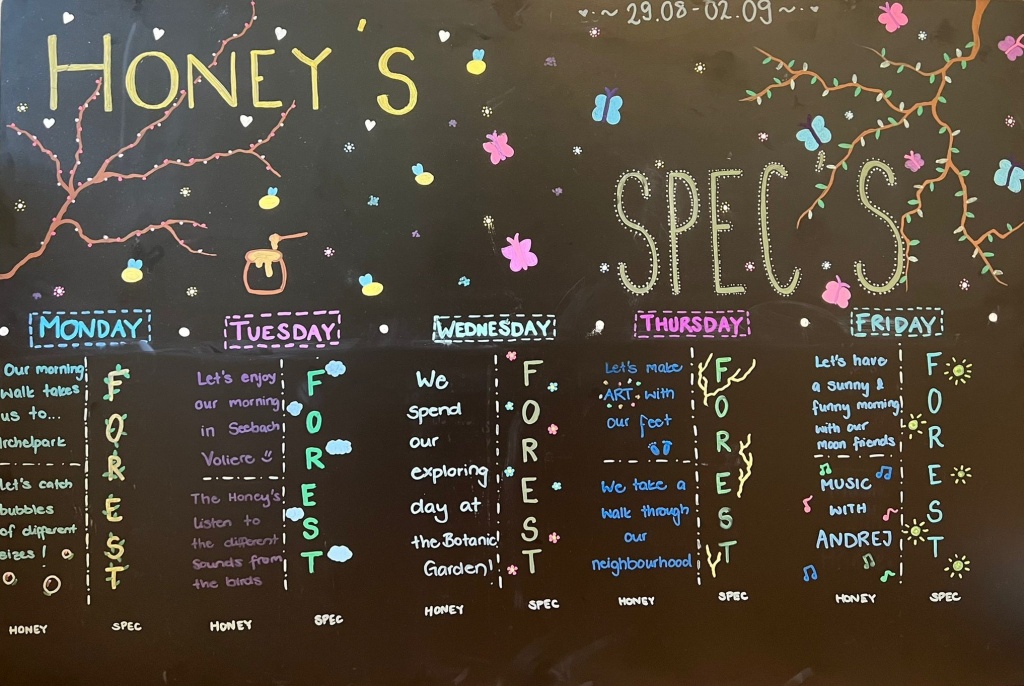 HONEY'S
~ 29.08-02.09 ~
SPEC'S
MONDAY
Our morning
walk takes
us to...
Irchelpark
Let's catch
bubbles
of different
sizes!
FOREST
HONEY
SPEC
TUESDAY
Let's enjoy
our morning
in Seebach
Voliere
The Honey's
Listen to
the different
sounds from
the birds
FOREST
HONEY
SPEC
WEDNESDAY
We
spend
our
exploring
day at
the Botanic
Garden!
FOREST
HONEY
SPEC
THURSDAY
Let's make
ART with
our feet
We take a
walk through
our
neighbourhood
FOREST
HONEY
SPEC
FRIDAY
Let's have
a sunny &
funny morning
with our
moon friends
MUSIC
WITH
ANDREJ
FOREST
HONEY
SPEC